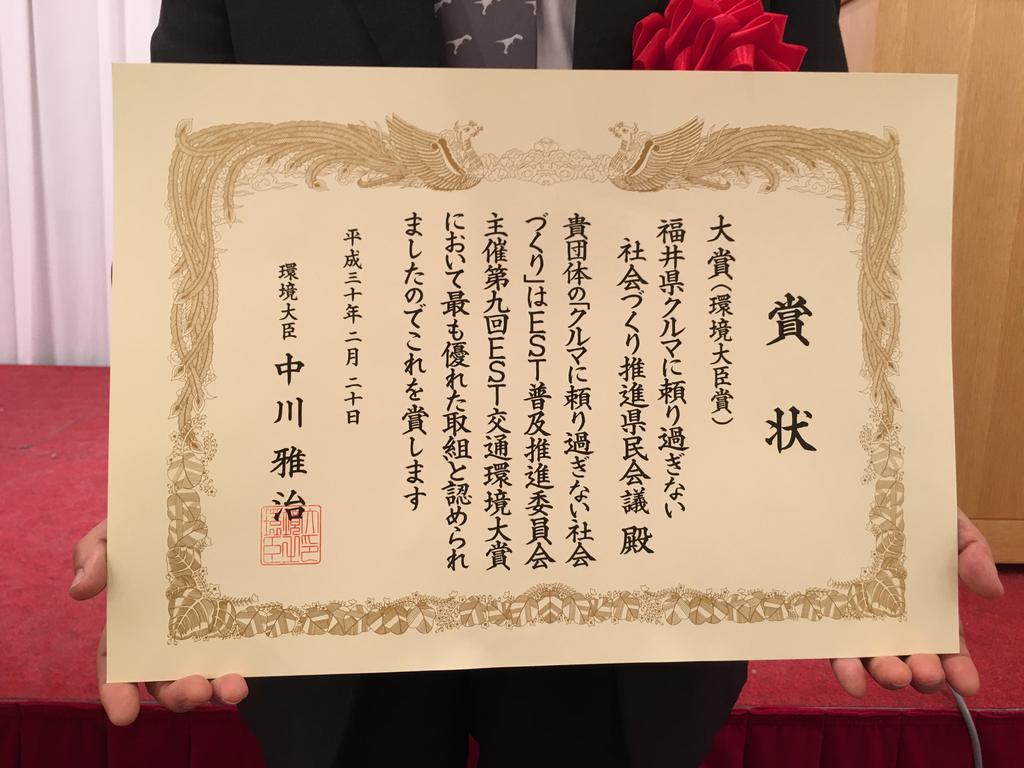 賞状
大賞(環境大臣賞)
福井県クルマに頼り過ぎない
社会づくり推進県民会議 殿
貴団体の「クルマに頼り過ぎない社会
づくり」はEST普及推進委員会
主催第九回EST交通環境大賞
において最も優れた取組と認められ
ましたのでこれを賞します
平成三十年二月二十日
環境大臣 中川雅治